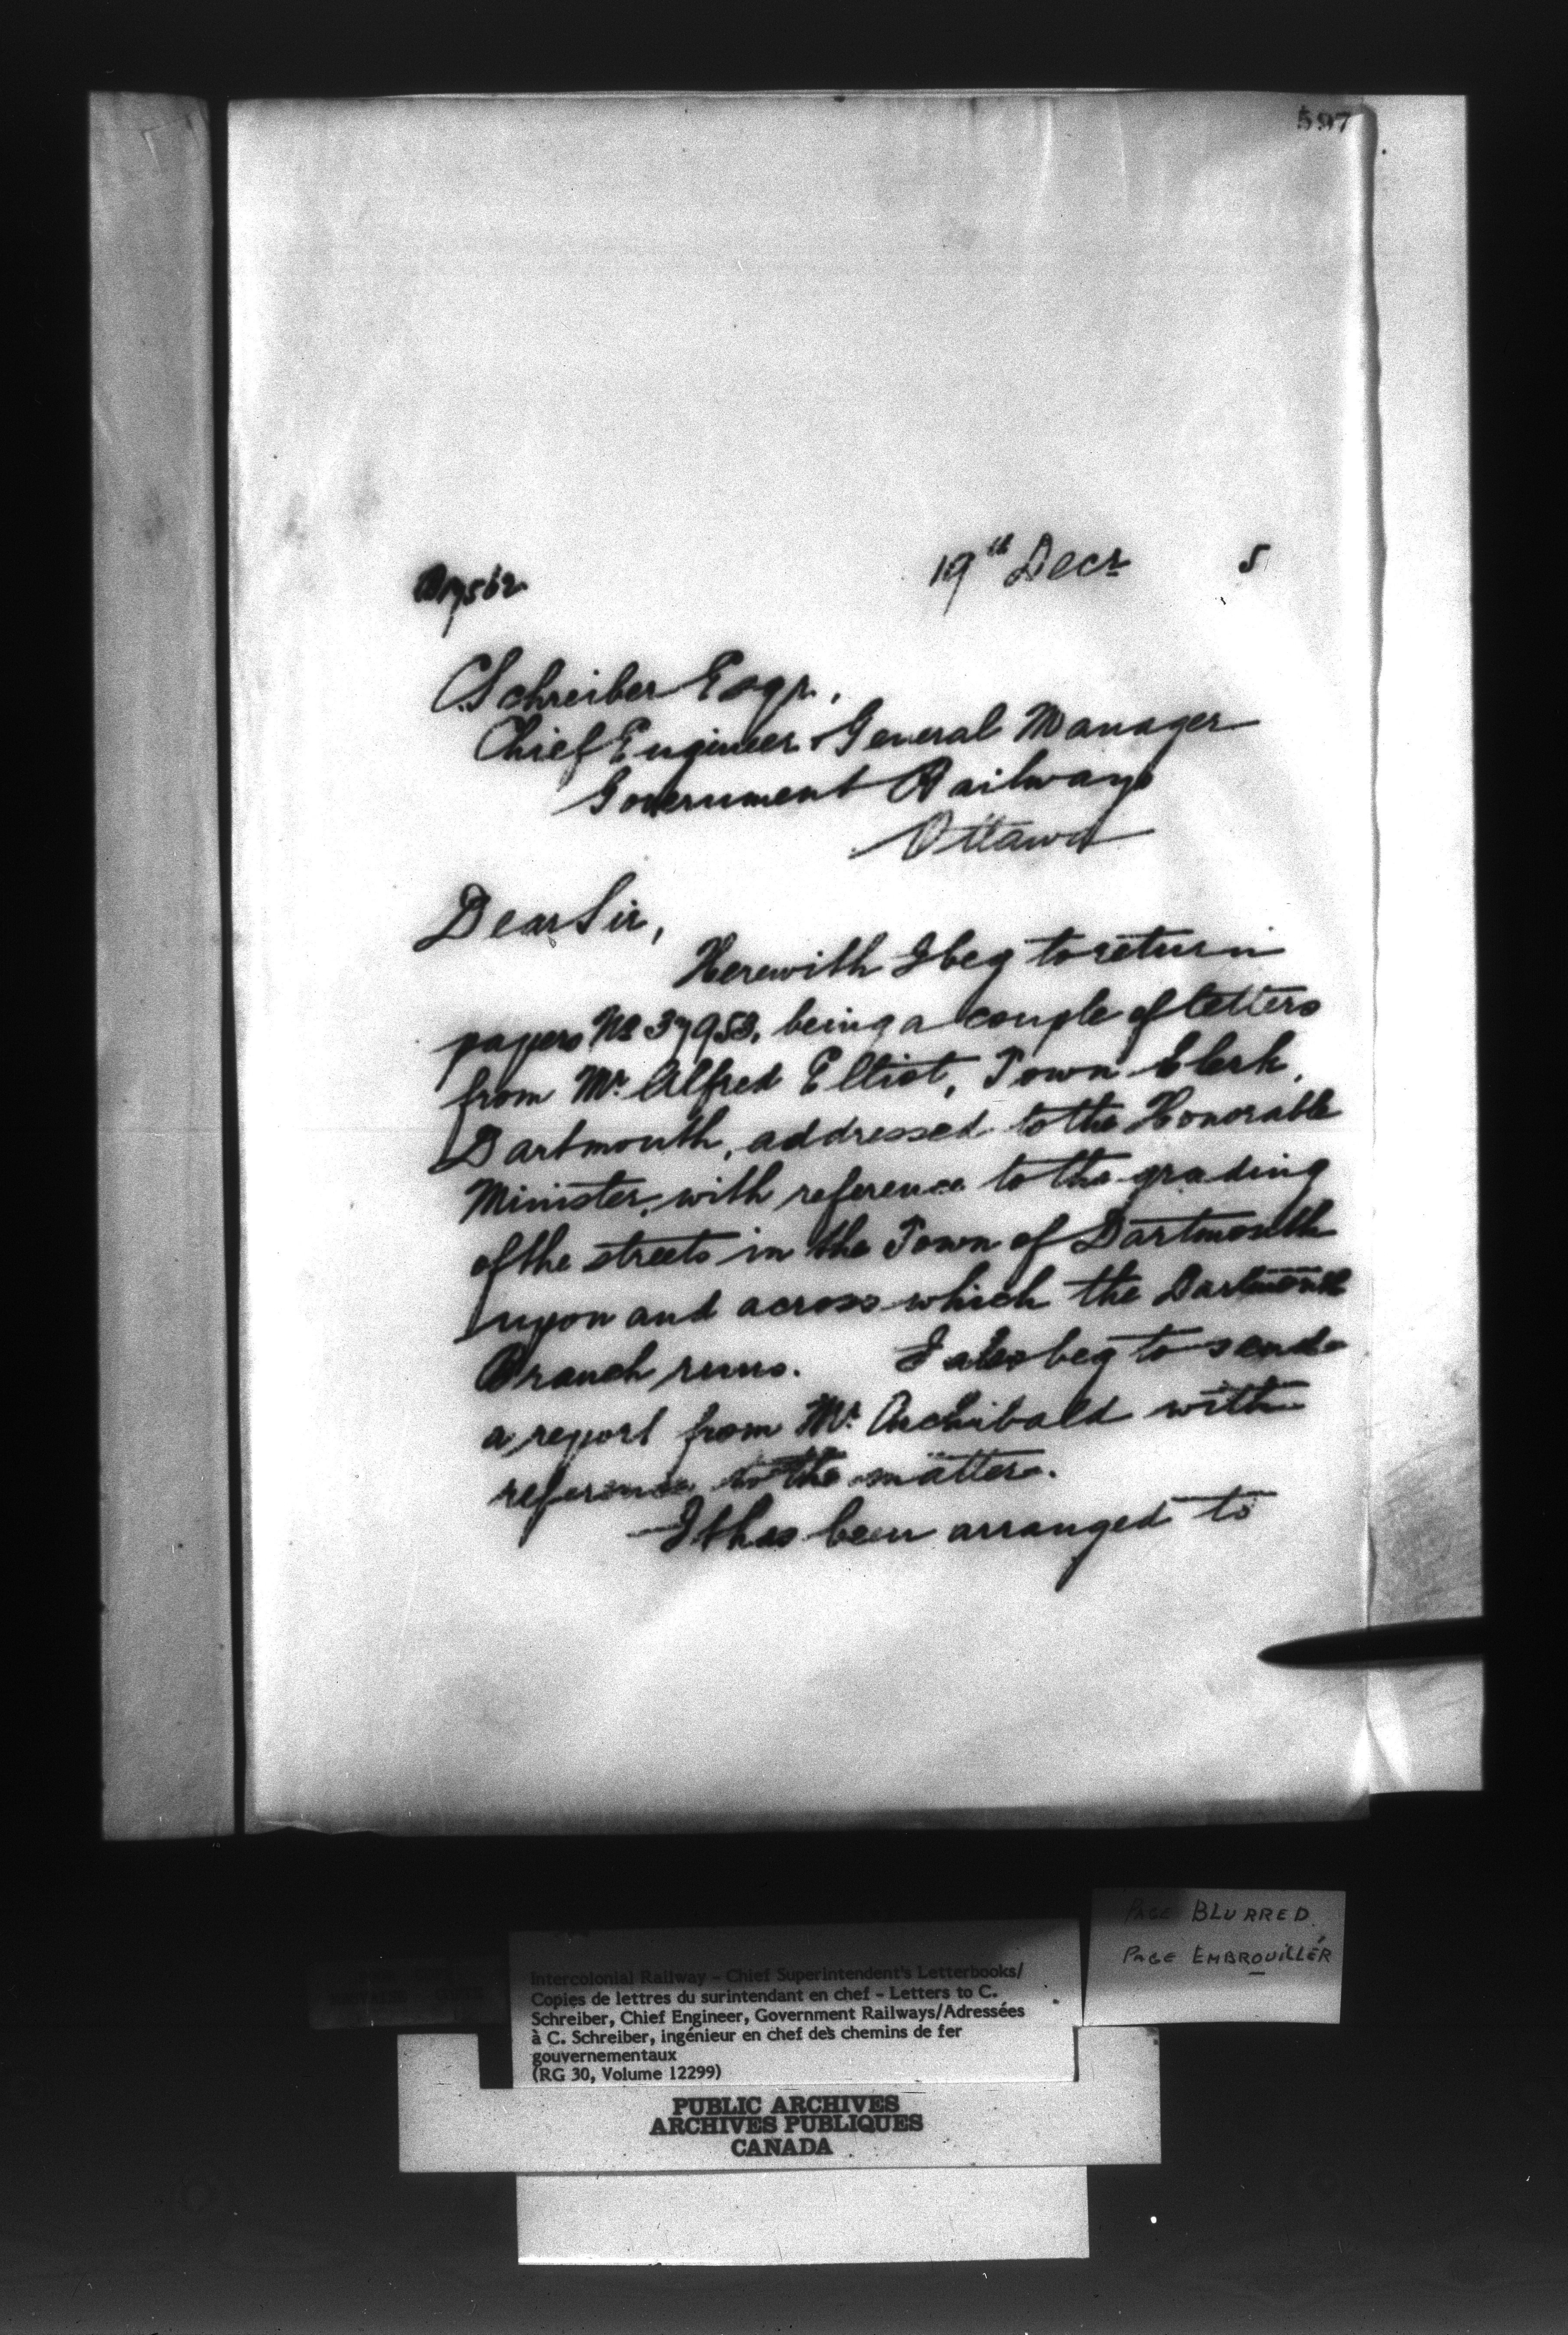 597
19th Decr 5
C. Schreiber Esqr.,
Chief Engineer & General Manager
Government Railways
Ottawa
Dear Sir,
Herewith I beg to return
papers No 37953, being a couple of letters
from Mr. Alfred Elliot, Town Clerk,
Dartmouth, addressed to the Honorable
Minister, with reference to the grading
of the streets in the Town of Dartmouth
upon and across which the Dartmouth
Branch runs. I also beg to send
a report from Mr. Archibald with
reference to the matter.
It has been arranged to
PAGE BLURRED
PAGE EMBROUILLÉR
Intercolonial Railway - Chief Superintendent's Letterbooks/
Copies de lettres du surintendant en chef - Letters to C.
Schreiber, Chief Engineer, Government Railways/Adressées
à C. Schreiber, ingénieur en chef des chemins de fer
gouvernementaux
(RG 30, Volume 12299)
PUBLIC ARCHIVES
ARCHIVES PUBLIQUES
CANADA